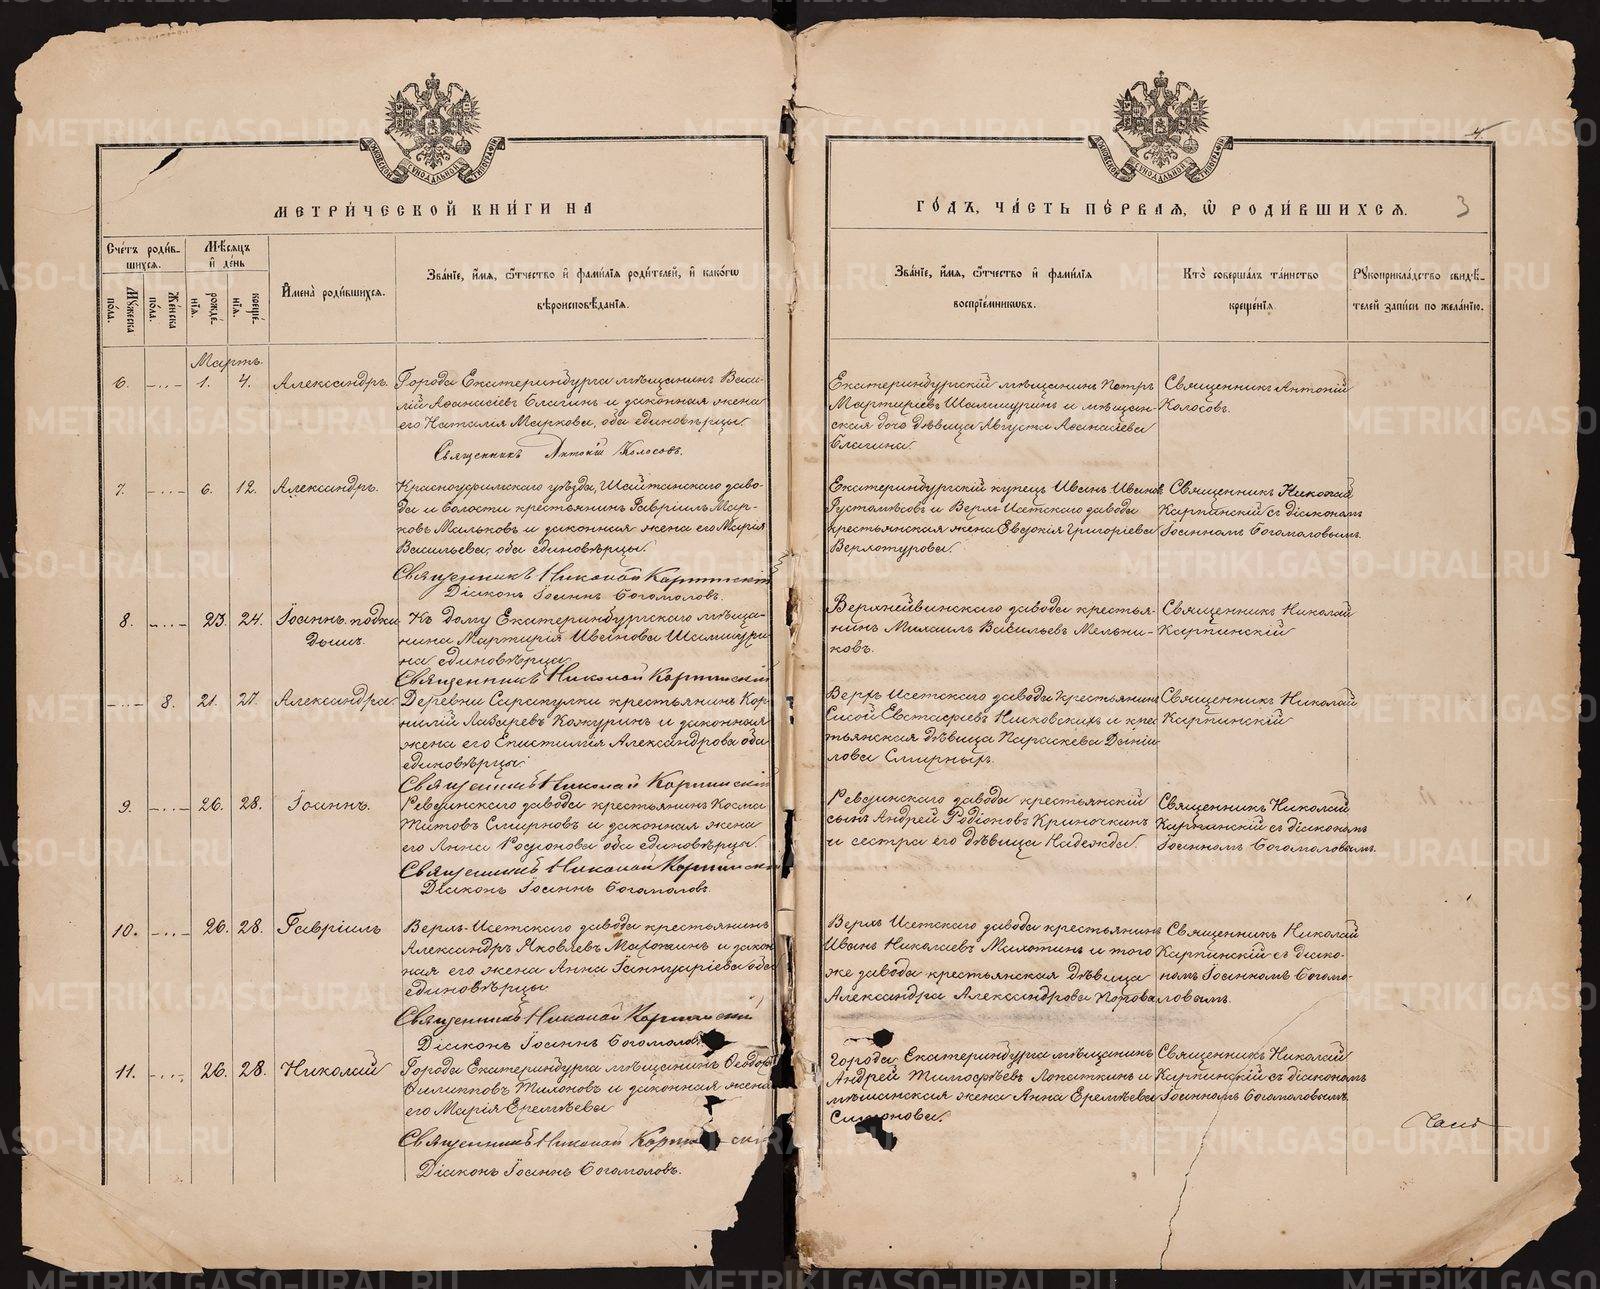 МЕТРИ́ЧЕСКОЙ КНИ́ГИ НА
ГО́ДЪ, ЧА́СТЬ ПЕ́РВАЯ, Ѿ РОДИ́ВШИХСЯ.
3
Сче́тъ роди́в-
шихся.
Мѣ́сяцъ
и де́нь
Мꙋ́жеска
по́ла.
Же́нска
по́ла.
рожде́-
нїя.
креще́-
нїя.
Имена̀ роди́вшихся.
Зва́нїе, и́мя, о́тчество и фами́лїя роди́телей, и како́гѡ
вѣроисповѣ́данїя.
Зва́нїе, и́мя, о́тчество и фами́лїя
воспрїе́мникѡвъ.
Кто̀ соверша́лъ та́инство
креще́нїя.
Рꙋкоприкла́дство свидѣ́-
телей за́писи по жела́нїю.
Мартъ.
6. 1. 4. Александръ.
Города Екатеринбурга мѣщанинъ Васи-
лій Аѳанасіевъ Благинъ и законная жена
его Наталія Маркова, оба единовѣрцы.
Священникъ Антоній Колосовъ.
Екатеринбургскій мѣщанинъ Петръ
Мартиріевъ Шамшуринъ и мѣщан-
ская дочь дѣвица Августа Аѳанасіева
Благина.
Священникъ Антоній
Колосовъ.
7. 6. 12. Александръ.
Красноуфимскаго уѣзда, Шайтанскаго заво-
да и волости крестьянинъ Гавріилъ Мар-
ковъ Мальковъ и законная жена его Марія
Васильева, оба единовѣрцы.
Священникъ Николай Карпинскій
Діаконъ Іоаннъ Богомоловъ.
Екатеринбургскій купецъ Иванъ Ивановъ
и Верхъ-Исетскаго завода
крестьянская жена Евдокія Григоріева
Верхотурова.
Священникъ Николай
Карпинскій съ діакономъ
Іоанномъ Богомоловымъ.
8. 23. 24. Іоаннъ подки
дышъ.
Къ дому Екатеринбургскаго мѣща-
нина Мартирія Иванова Шамшури-
на единовѣрца
Священникъ Николай Карпинскій
Верхнейвинскаго завода крестья-
нинъ Михаилъ Васильевъ Мельни-
ковъ.
Священникъ Николай
Карпинскій
8. 21. 27. Александра
Деревни Сарапулки крестьянинъ Кор-
нилій Лазаревъ Кожуринъ и законная
жена его Епистимія Александрова оба
единовѣрцы.
Священникъ Николай Карпинскій
Верхъ Исетскаго завода крестьянинъ
Сисой Евстафіевъ и крес
тьянская дѣвица Параскева Даніи-
лова Смирныхъ.
Священникъ Николай
Карпинскій
9. 26. 28. Іоаннъ.
Ревдинскаго завода крестьянинъ Косма
Титовъ Смирновъ и законная жена
его Анна Родіонова оба единовѣрцы.
Священникъ Николай Карпинскій
Діаконъ Іоаннъ Богомоловъ.
Ревдинскаго завода крестьянскій
сынъ Андрей Родіоновъ Криночкинъ
и сестра его дѣвица Надежда.
Священникъ Николай
Карпинскій съ діакономъ
Іоанномъ Богомоловымъ.
10. 26. 28. Гавріилъ
Верхъ-Исетскаго завода крестьянинъ
Александръ Яковлевъ и закон
ная его жена Анна Іаннуаріева оба
единовѣрцы
Священникъ Николай Карпинскій
Діаконъ Іоаннъ Богомоловъ
Верхъ Исетскаго завода крестьянинъ
Иванъ Николаевъ Махотинъ и того
же завода крестьянская дѣвица
Александра Александрова Попова
Священникъ Николай
Карпинскій съ діако-
номъ Іоанномъ Богомо-
ловымъ.
11. 26. 28. Николай
Города Екатеринбурга мѣщанинъ Ѳеодоръ
Филипповъ и законная жена
его Марія Еремѣева
Священникъ Николай Карпинскій
Діаконъ Іоаннъ Богомоловъ.
Города Екатеринбурга мѣщанинъ
Андрей Тимоѳеевъ Лопаткинъ и
мѣщанская жена Анна Еремѣева
Симонова.
Священникъ Николай
Карпинскій съ діакономъ
Іоанномъ Богомоловымъ.
METRIKI.GASO-URAL.RU